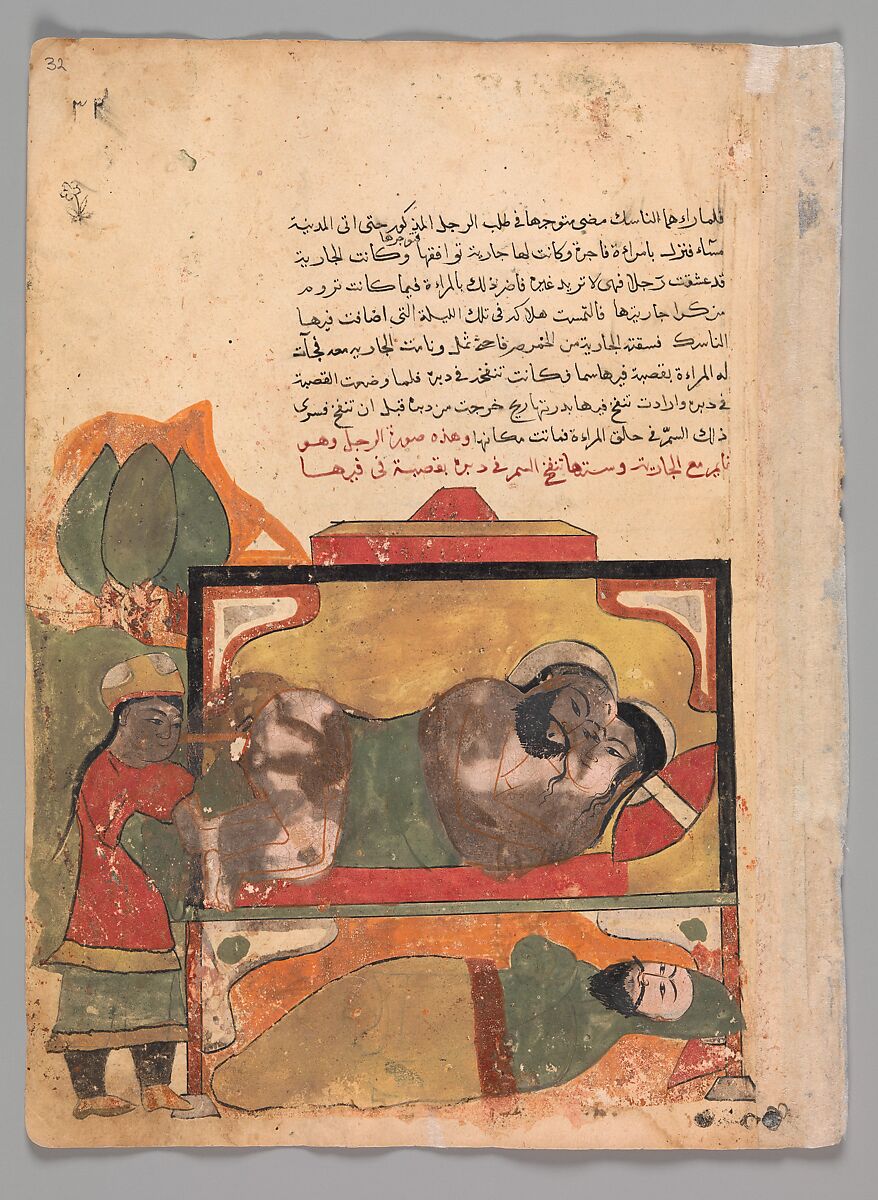 32
٣٢
فلما راءهما الناسك مضى متوجها في طلب الرجل المذكور حتى اتى المدينة
مسآء فنزل بامراءة فاجرة وكانت لها جارية توافقها وكانت الجارية
قد عشقت رجلا فهى لا تريد غيره فاضر ذلك بالمراءة فيما كانت تروم
من كرا جاريتها فالتمست هلاكه في تلك الليلة التى اضافت فيها
الناسك فسقته الجارية من الخمر صرفا حتى ثمل ونامت الجاريه معه فجآت
له المراءة بقصبة فيها سما وكانت تنفخه في دبره فلما وضعت القصبة
في دبره وارادت تنفخ فيها بدرتها ريح خرجت من دبره قبل ان تنفخ فسرى
ذلك السمّ في حلق المراءة فماتت مكانها وهذه صورة الرجل وهو
نايم مع الجارية وستها تنفخ السم في دبره بقصبة في فيها